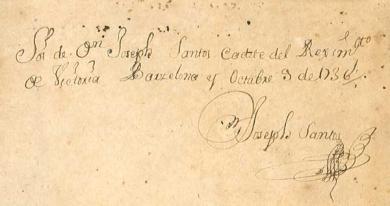 Soi de Dn Joseph Santos Cadete del Reximto
de Victoria Barzelona y Octubre 3 de 1736
Joseph Santos